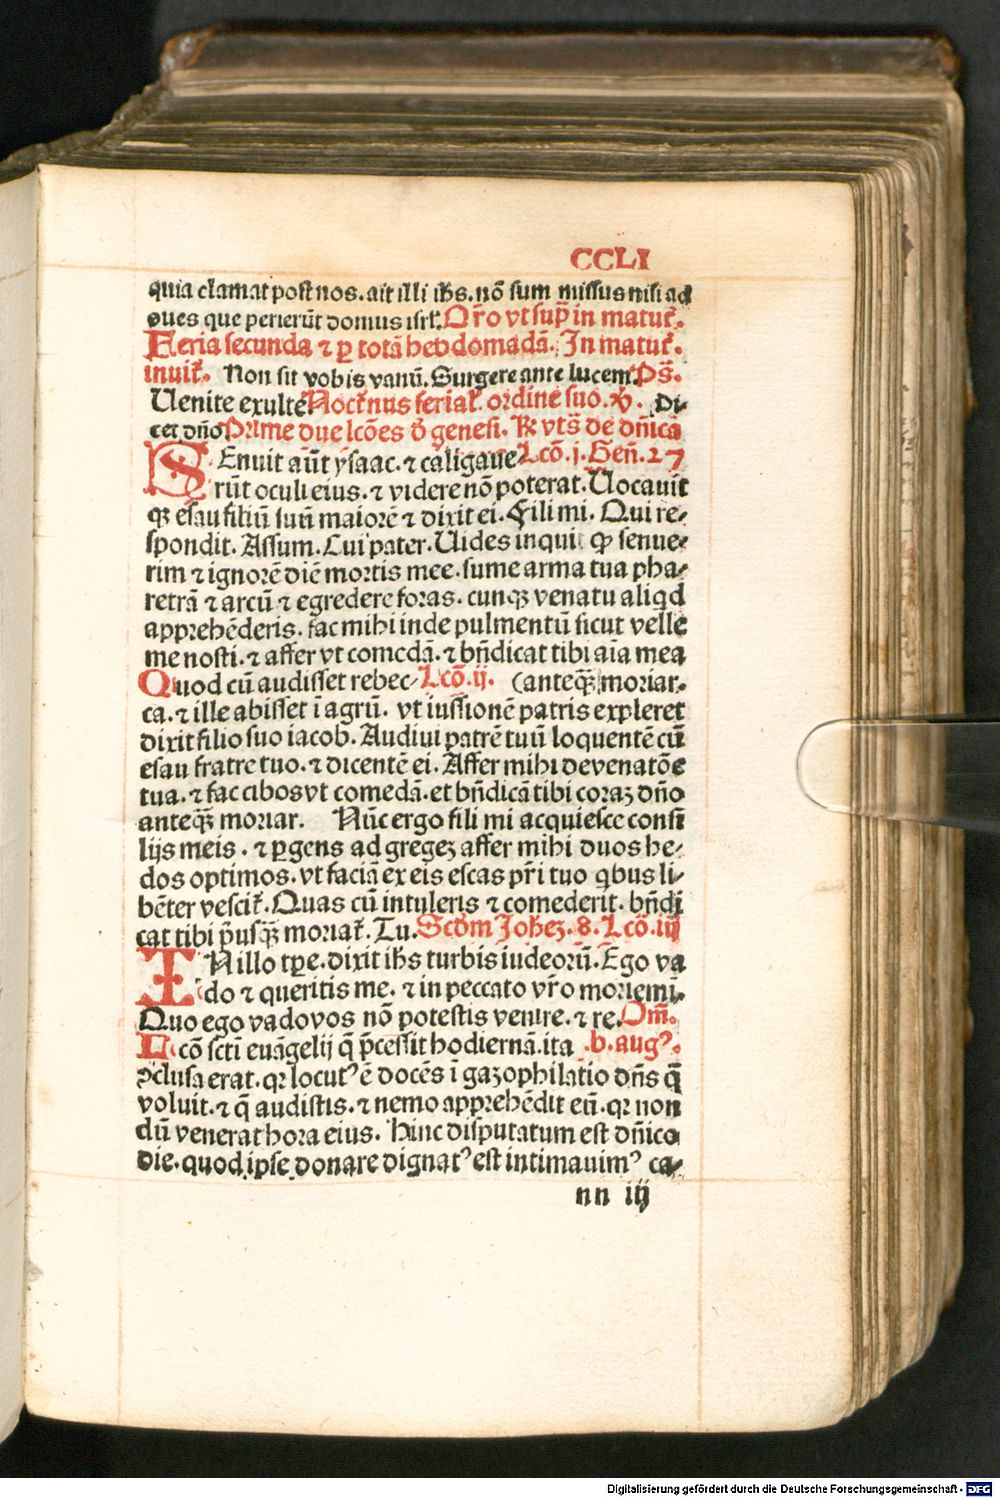 CCLI
quia clamat post nos. ait illi ihs. nō sum missus nisi ad
oues que perierūt domus isrl. Or̄o vt sup̄ in matut̄.
Feria secunda ⁊ ꝑ totā hebdomadā. In matut̄.
inuit̄. Non sit vobis vanū. Surgere ante lucem. Ps̄.
Uenite exulte. Noct̄nus ferial̄ ordine suo. v̄. Di-
cet dn̄o. Prime due lcōes de genesi. ℞ vts̄ de dn̄ica
SEnuit aūt ysaac. ⁊ caligaue Lcō. j. Gen̄. 27
rūt oculi eius. ⁊ videre nō poterat. Uocauit
qꝫ esau filiū suū maiorē ⁊ dixit ei. Fili mi. Qui re-
spondit. Assum. Cui pater. Uides inquit ꝙ senue-
rim ⁊ ignorē diē mortis mee. sume arma tua pha-
retrā ⁊ arcū ⁊ egredere foras. cunqꝫ venatu aliqd
apprehēderis. fac mihi inde pulmentū sicut velle
me nosti. ⁊ affer vt comedā. ⁊ bn̄dicat tibi aīa mea
Quod cū audisset rebec- Lcō. ij. (anteqꝫ moriar.
ca. ⁊ ille abisset ī agrū. vt iussionē patris expleret
dixit filio suo iacob. Audiui patrē tuū loquentē cū
esau fratre tuo. ⁊ dicentē ei. Affer mihi de venatōe
tua. ⁊ fac cibos vt comedā. et bn̄dicā tibi coraꝫ dn̄o
anteqꝫ moriar. Nūc ergo fili mi acquiesce consi
lijs meis. ⁊ ꝑgens ad gregeꝫ affer mihi duos he-
dos optimos. vt faciā ex eis escas pr̄i tuo qbus li-
bēter vescit̄. Quas cū intuleris ⁊ comederit. bn̄di
cat tibi p̄usqꝫ moriat̄. Tu. Scd̄m Joheꝫ. 8. Lcō. iij
IN illo tꝑe. dixit ihs turbis iudeorū. Ego va
do ⁊ queritis me. ⁊ in peccato vr̄o moriemī.
Quo ego vado vos nō potestis venire. ⁊ re. Om̄.
Lcō scti euāgelij q̄ p̄cessit hodiernā. ita .b. augꝰ.
ↄclusa erat. qꝛ locutꝰ ē docēs ī gazophilatio dn̄s q̄
voluit. ⁊ q̄ audistis. ⁊ nemo apprehēdit eū. qꝛ non
dū venerat hora eius. Hinc disputatum est dn̄ico
die. quod ipse donare dignatꝰ est intimauimꝰ ca-
nn iij
Digitalisierung gefördert durch die Deutsche Forschungsgemeinschaft - DFG